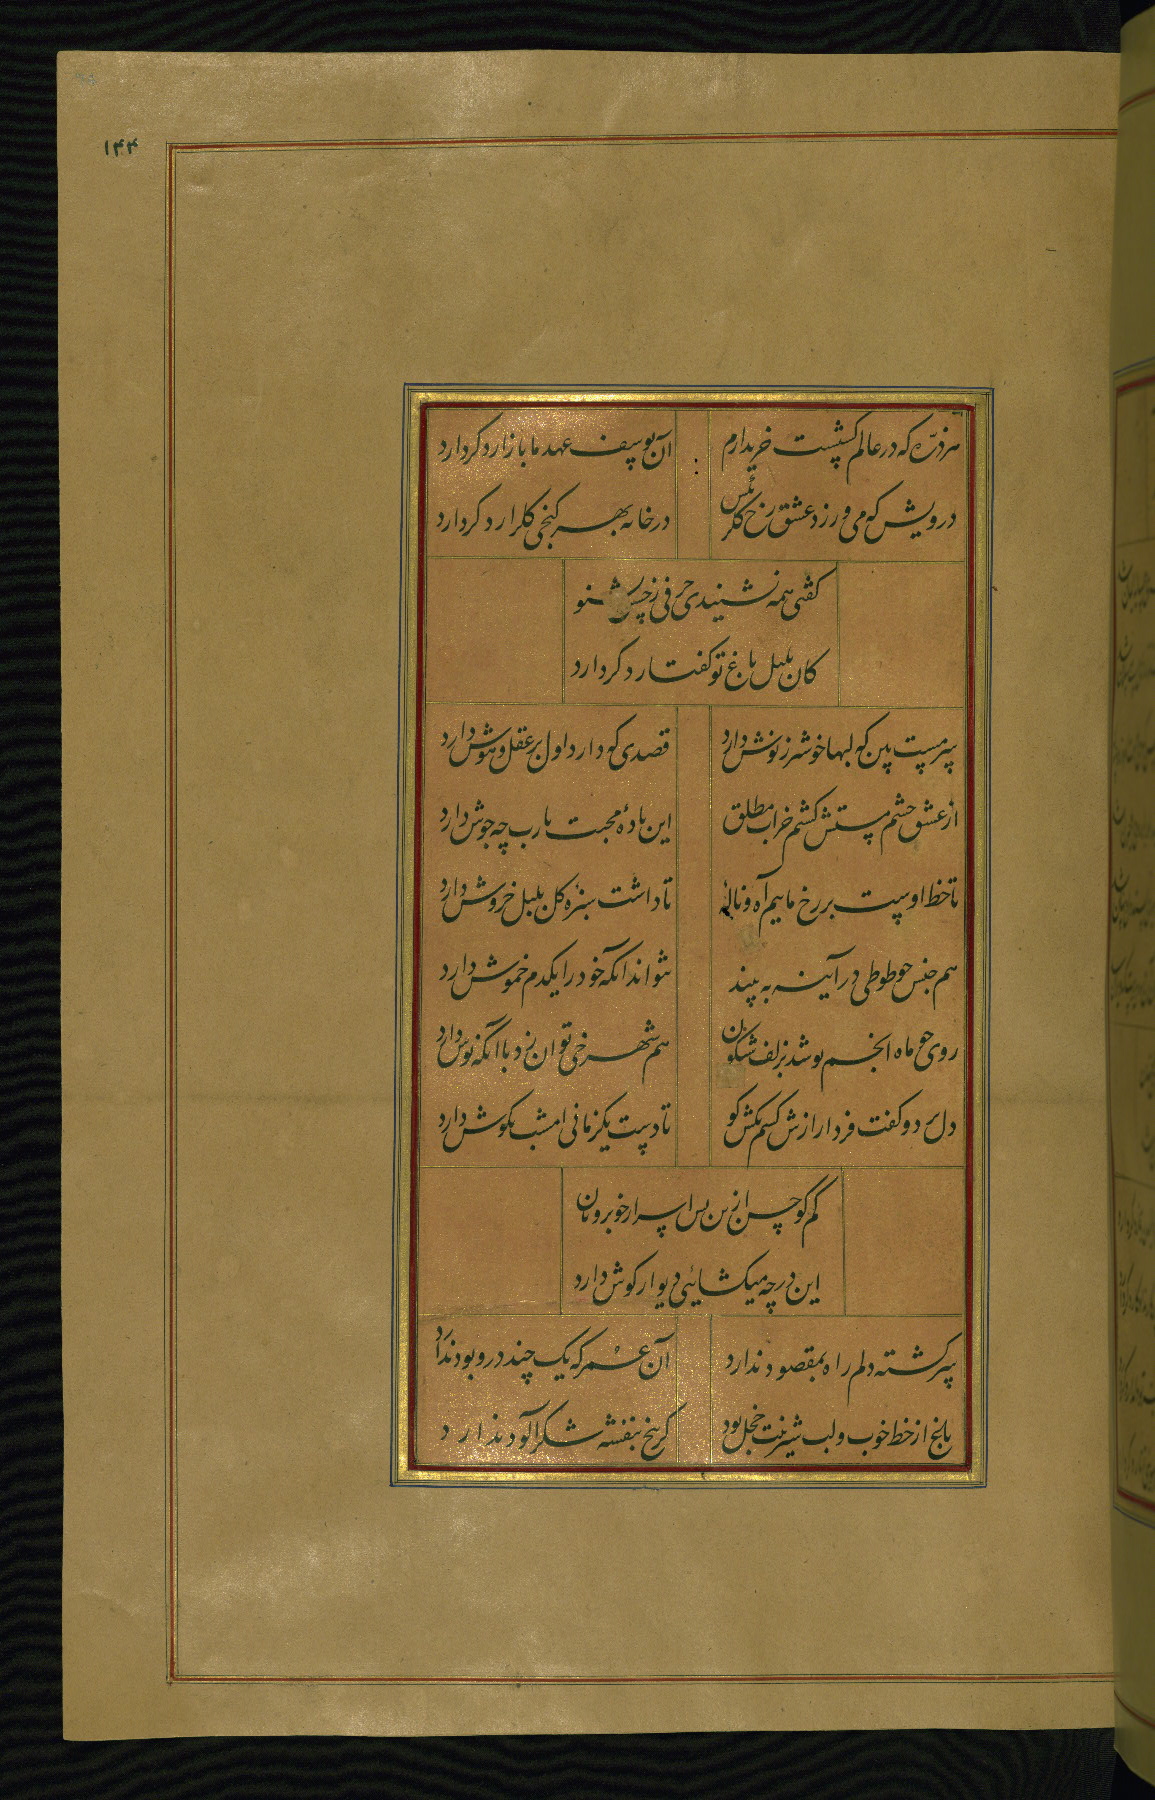 ۱۴۴
هر ذره که در عالم گشتست خریدارم
آن یوسف عهد ما بازار دگر دارد
درویش که می ورزد عشق رخ گلرنگش
در خانه بهر کنجی گلزار دگر دارد
گفتی همه نشنیدی حرفی ز حسن بشنو
کان بلبل باغ تو گفتار دگر دارد
سرمست بین که لبها خوشتر ز نوش دارد
قصدی که دارد اول بر عقل و هوش دارد
از عشق چشم مستش گشتم خراب مطلق
این باده محبت یارب چه جوش دارد
تا خط اوست بر رخ ماییم آه و ناله
تا داشت سبزه گل بلبل خروش دارد
هم جنس چو طوطی در آینه به بیند
نتواند آنکه خود را یکدم خموش دارد
روی چو ماه انجم پوشد بزلف شبگون
هم شهرخی توان زد با آنکه پوش دارد
دل برد و گفت فردا رازش کنم بکش کو
تا دست یکزمانی امشب بگوش دارد
کم گو حسن ازین پس اسرار خوبرویان
این در چه میگشائی دیوار گوش دارد
سرگشته دلم راه بمقصود ندارد
آن عمر که یک چند درو بود ندارد
باغ از خط خوب و لب شیرینت خجل بود
کز هیچ بنفشه شکر آلود ندارد